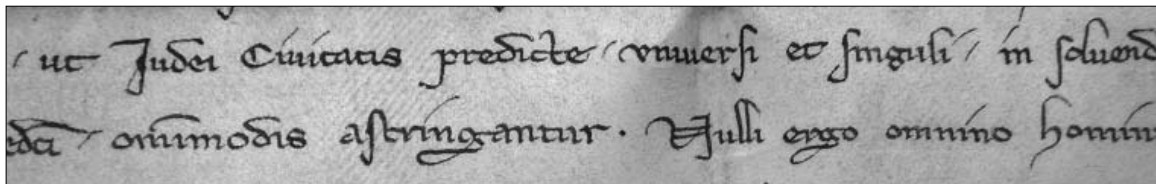 / ut Judei Civitatis predicte / vniuersi et singuli / in soluend
edcī / omīmodis astringantur . Nulli ergo omnino homin